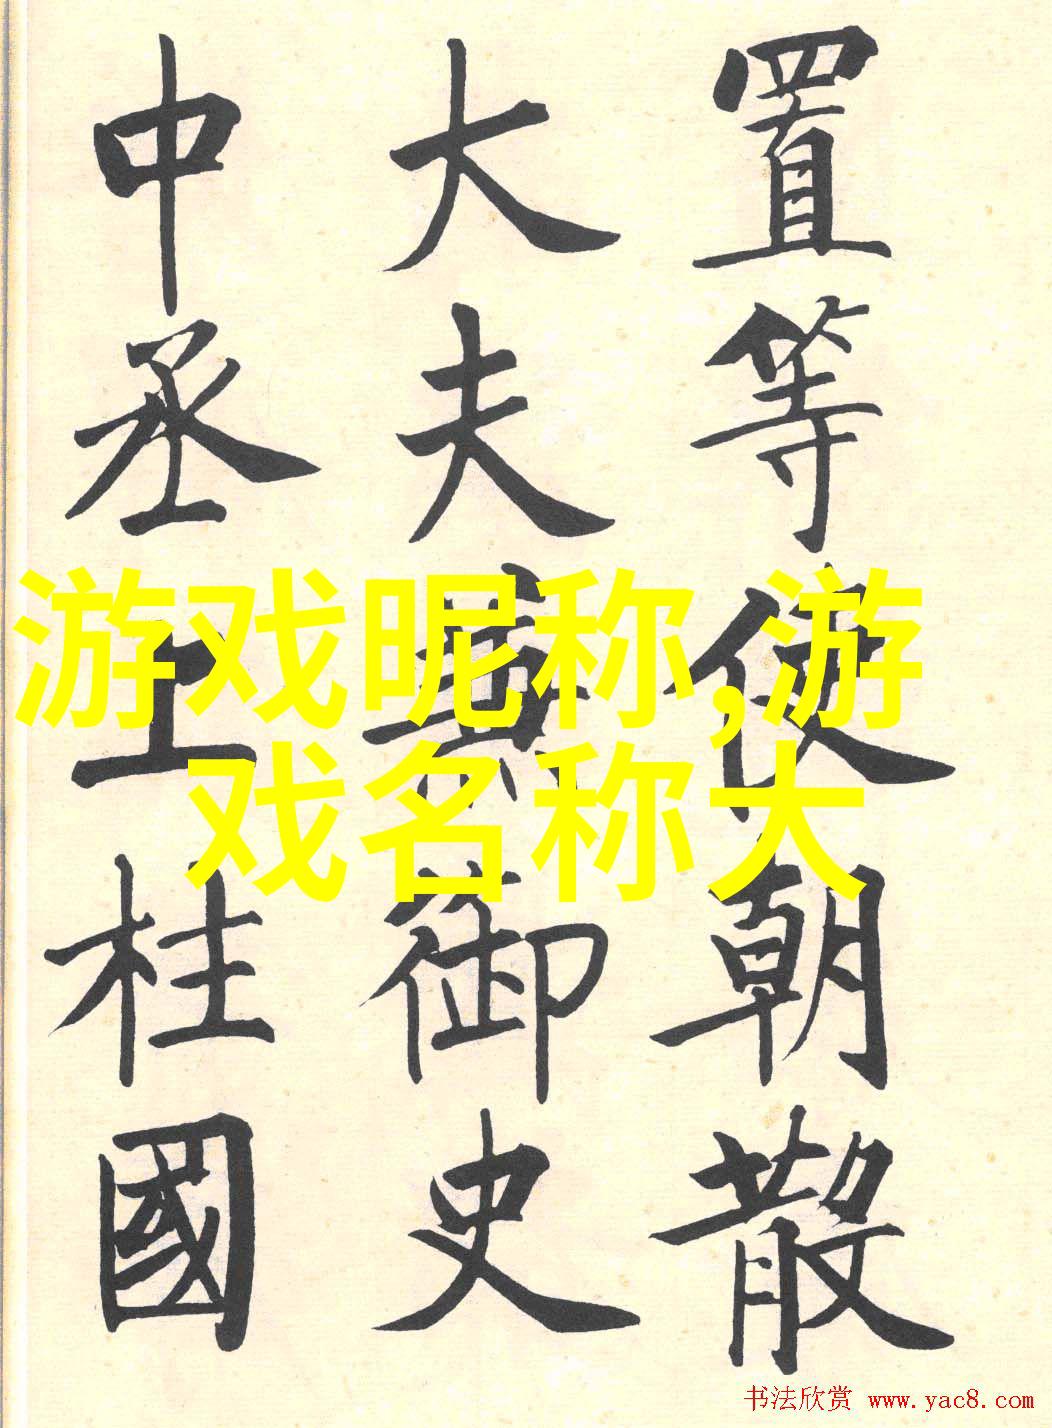 置等使朝散
大夫兼御史
中丞上柱國
游戏昵称,游
戏名称大
书法欣赏 www.yac8.com